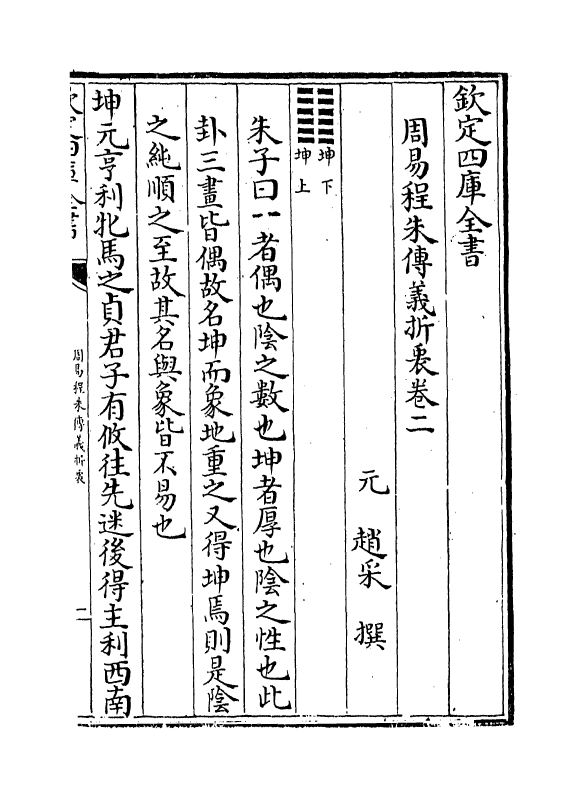 欽定四庫全書
周易程朱傳義折衷卷二
元 趙采 撰
䷁坤下坤上
朱子曰⚋者偶也陰之數也坤者厚也陰之性也此
卦三畫皆偶故名坤而象地重之又得坤焉則是陰
之純順之至故其名與象皆不易也
坤元亨利牝馬之貞君子有攸往先迷後得主利西南
欽定四庫全書
周易程朱傳義折衷
二